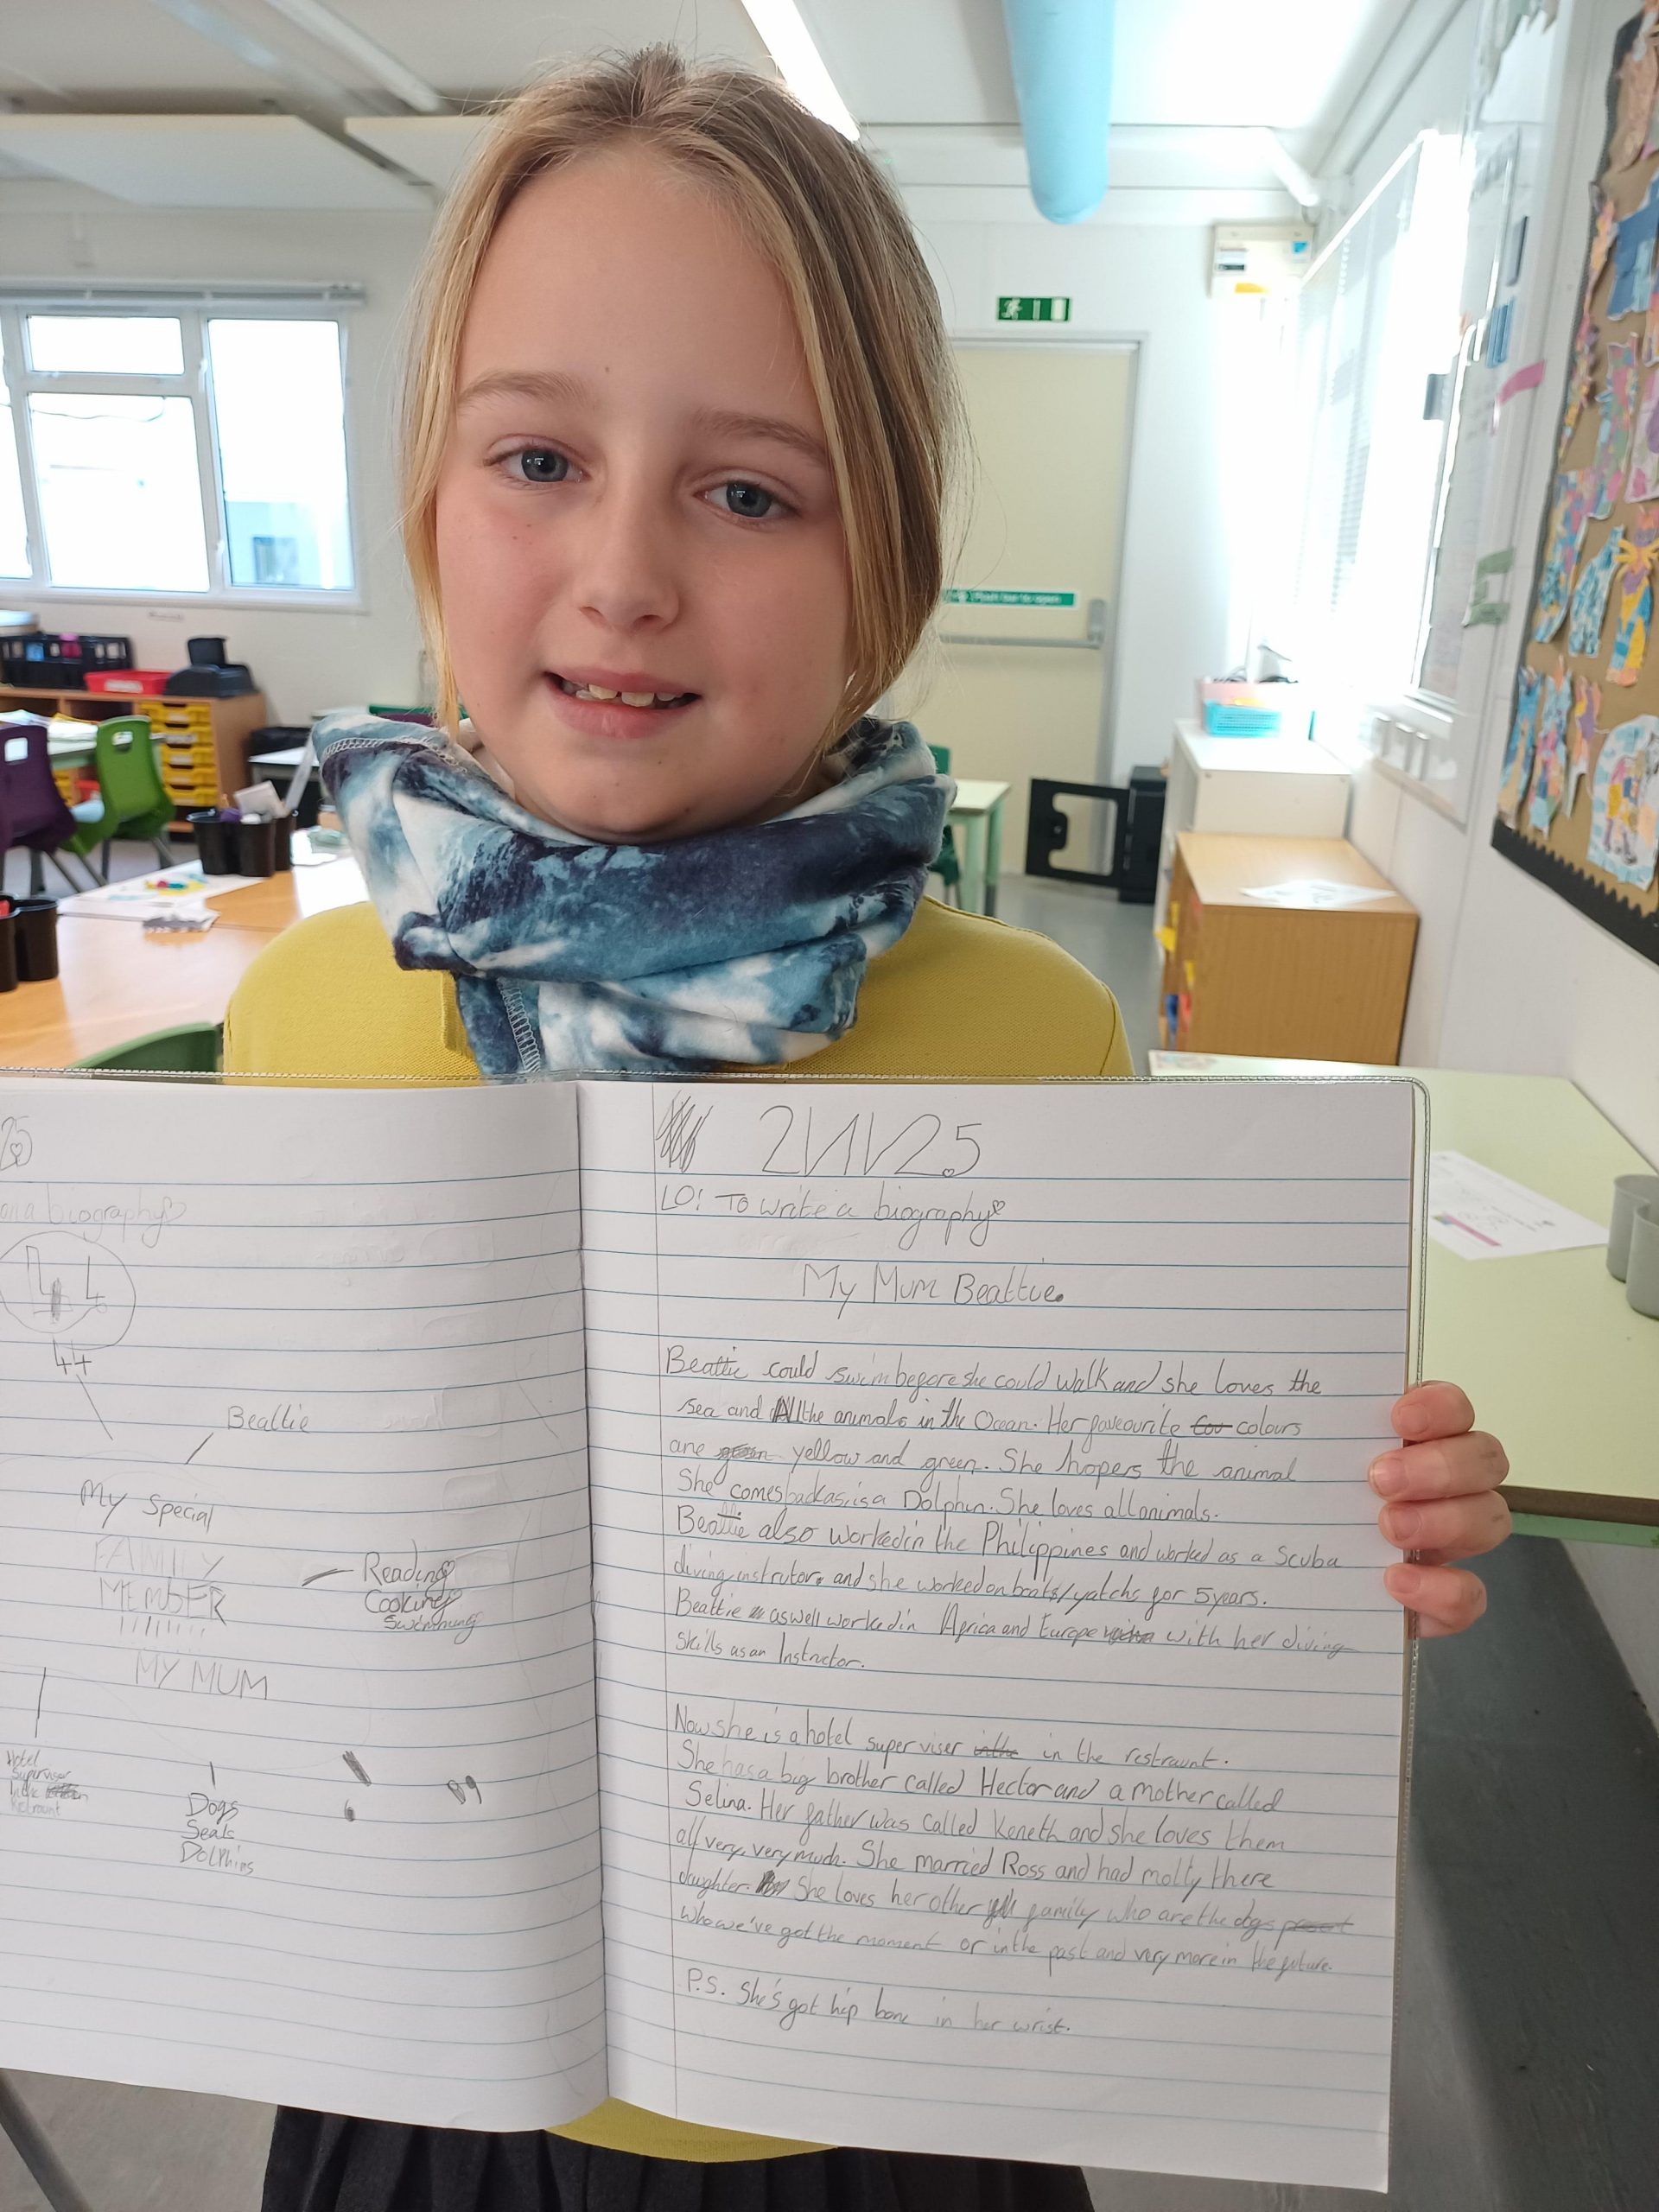 Push bar to open
25
on a biography
44
44
Beattie
My Special
FAMILY
MEMBER
MY MUM
Reading
Cooking
Swimming
Hotel
Superviser
In the
Restraunt
Dogs
Seals
Dolphins
6
89
21/1/25
LO: To write a biography
My Mum Beattie.
Beattie could swim before she could walk and she loves the
sea and All the animals in the Ocean. Her faveourite colours
are yellow and green. She hopers the animal
She comes back as is a Dolphin. She loves all animals.
Beattie also worked in the Philippines and worked as a Scuba
diving instrutor, and she worked on boats/yatchs for 5 years.
Beattie as well worked in Africa and Europe with her diving
skills as an Instructor.
Now she is a hotel super viser in the restraunt.
She has a big brother called Hector and a mother called
Selina. Her father was called Keneth and she loves them
all very, very much. She married Ross and had molly there
daughter. She loves her other family who are the dogs
who we've got the moment or in the past and very more in the future.
P.S. She's got hip bone in her wrist.